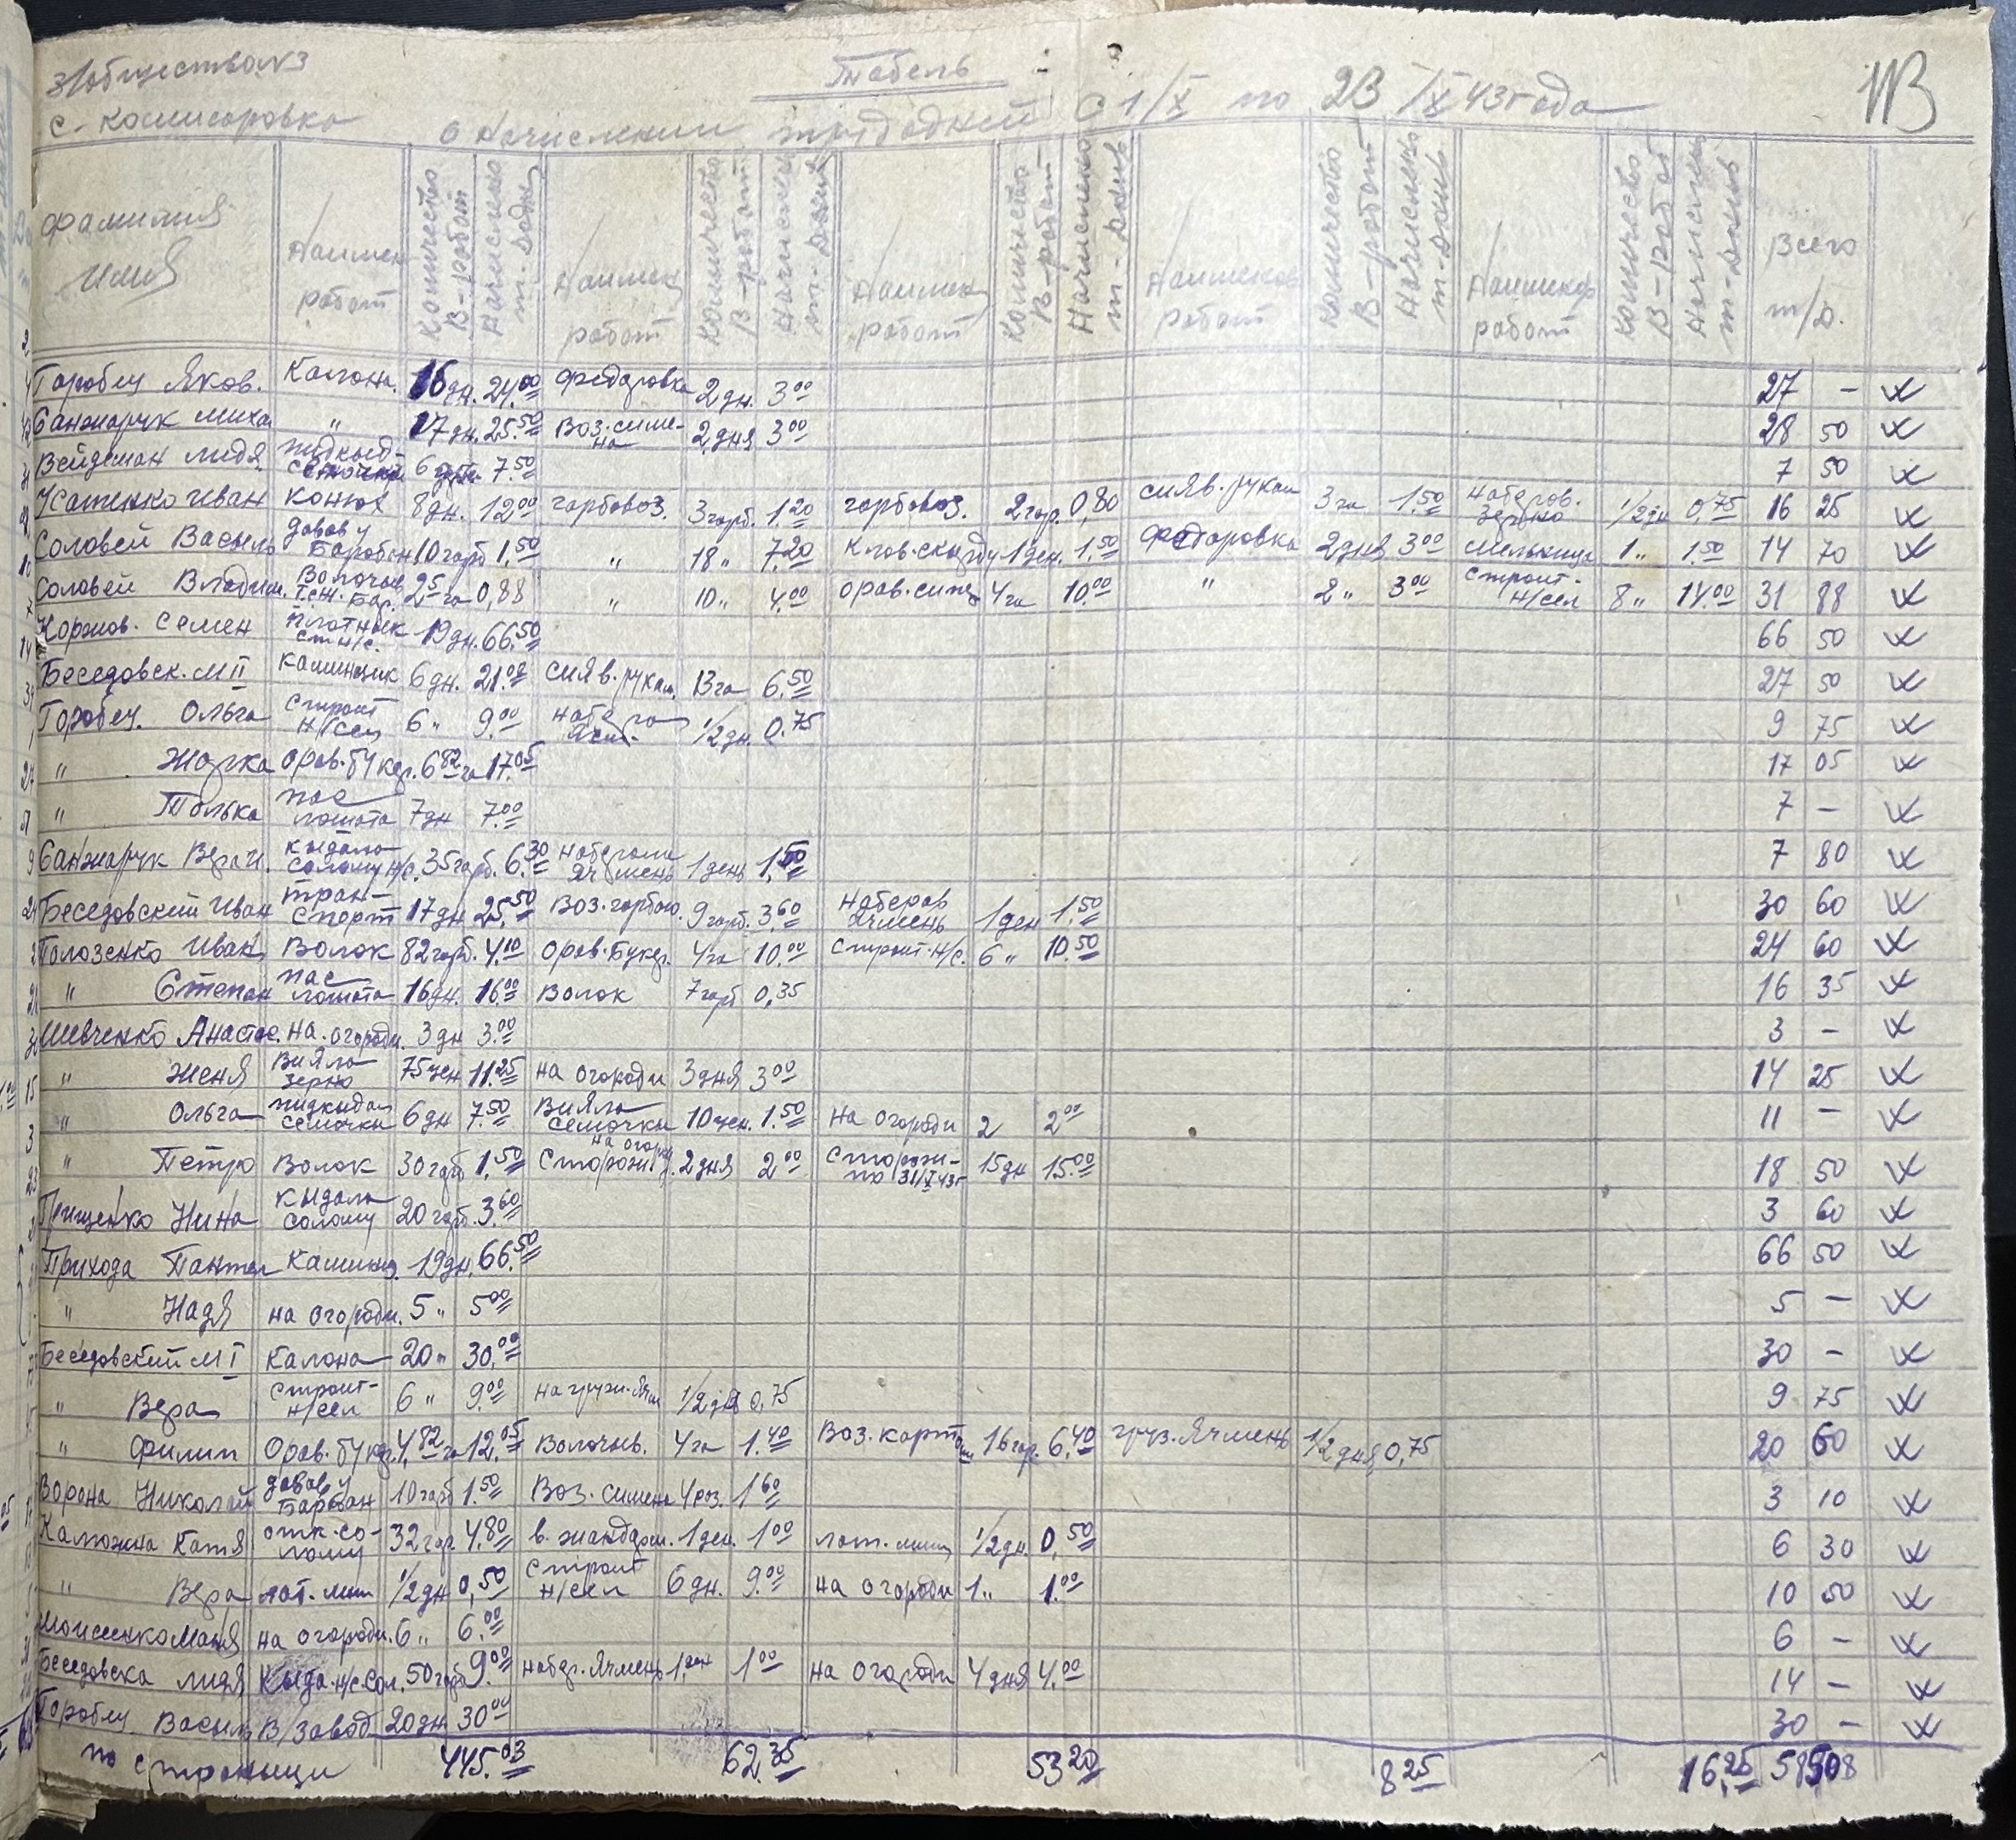 3/обществом №3
Табель
113
с. Комисаровка
о начислении трудодней с 1/X по 23/X 43 года
Фамилия Имя
Наимен работ
Количество В-работ
Начислено т.-додн
Наимен работ
Количество В-работ
Начислено т-дань
Наимен работ
Количество В-работ
Начислено т-дань
Наименов работ
Количество В-работ
Начислень т-дань
Наименов работ
Количество В-работ
Начислень т-дань
Всего т/д.
Горобец Яков. Калона. 16 дн. 24.00 Федоровка 2 дн. 3.00 27 –
Санжарук Миха " 17 дн. 25.50 Воз. симена 2 дня 3.00 28 50
Вейдеман Лидя 6 7.50 7 50
Усатенко Иван Конюх 8 дн. 12.00 гарбовоз. 3 гарб. 1.20 гарбовоз. 2 гар. 0,80 сияв. рукам 3 га 1.50 наберов. зерно 1/2 дн 0,75 16 25
Соловей Василь давав у Барабан 10 гарб 1,50 " 18 " 7.20 1 ден. 1,50 Федоровка 2 дня 3.00 1 " 1.50 14 70
Соловей Владим. Волочыв 25 га 0,88 " 10 " 4.00 орав. 4 га 10.00 " 2 " 3.00 строит. н/сел 8 " 14.00 31 88
Коржов. Семен плотнык ст н/с. 19 дн. 66.50 66 50
Беседовск. М II каминщик 6 дн. 21.00 сияв. рукам. 13 га 6.50 27 50
Горобец. Ольга строит н/сел 6 " 9.00 1/2 дн. 0.75 9 75
" Жорка орав. букер. 6 82 га 17.05 17 05
" Толька пас лошата 7 дн 7.00 7 –
Санжарук Вера И. кыдала солому н/с. 35 гарб. 6.30 наберали ячмень 1 день 1,50 7 80
Беседовский Иван транспорт 17 дн 25.50 воз. гарбою. 9 гарб. 3.60 наберав ячмень 1 ден 1.50 30 60
Голозенко Иван Волок 82 гарб. 4.10 орав. Букер. 4 га 10.00 строит. н/с. 6 " 10.50 24 60
" Степан пас лошата 16 дн. 16.00 Волок 7 гарб 0,35 16 35
Шевченко Анастас. на огороди. 3 дн 3.00 3 –
" Женя вияла зерно 75 цен 11.25 на огороди 3 дня 3.00 14 25
" Ольга пидкидал семочки 6 дн 7.50 вияла семочки 10 цен. 1.50 на огороди 2 2.00 11 –
" Петро Волок 30 гарб 1,50 Сторож. на огород. 2 дня 2.00 Сторожи- по 31/X 43 г 15 дн 15.00 18 50
Грищенко Нина кыдала солому 20 гарб. 3.60 3 60
Прихода Пантел Каминщ. 19 дн. 66.50 66 50
" Надя на огороди. 5 " 5.00 5 –
Беседовский М I Калона 20 " 30.00 30 –
" Вера строит- н/сел 6 " 9.00 на грузи. ячм 1/2 дня 0,75 9 75
" Филип Орав. букер. 4,82 га 12.05 Волочив. 4 га 1.40 Воз. картош 16 гар. 6.40 груз. Ячмень 1/2 дня 0,75 20 60
Ворона Николай давав у Барабан 10 гарб 1.50 Воз. симена 4 раз. 1.60 3 10
Калюжна Катя отк. солому 32 гар 4.80 в. жандарм. 1 ден. 1.00 1/2 дн. 0,50 6 30
" Вера 1/2 дн 0,50 строит н/сел 6 дн. 9.00 на огороди 1 " 1.00 10 50
Моисенко Маня на огороди. 6 " 6.00 6 –
Беседовска Лидя Кыда. н/с. сол. 50 гарб 9.00 набер. Ячмень 1 ден 1.00 на огороди 4 дня 4.00 14 –
Горобец Василь В/завод 20 дн 30.00 30 –
по страныци 445.03 62.35 53 20 8 25 16.25